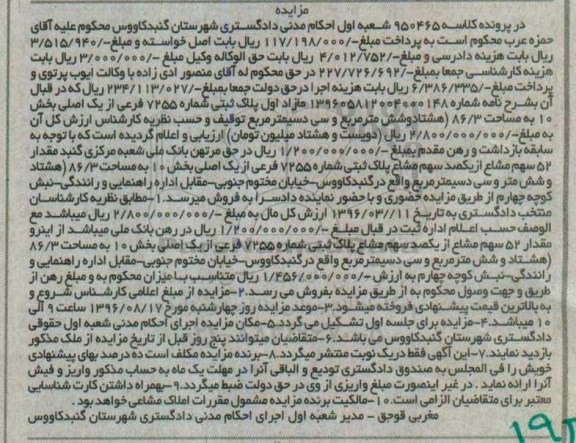 مزایده
در پرونده کلاسه ۹۵۰۴۶۵ شعبه اول احکام مدنی دادگستری شهرستان گنبدکاووس محکوم علیه آقای
حمزه عرب محکوم است به پرداخت مبلغ-/۱۱۷/۱۹۸/۰۰۰ ریال بابت اصل خواسته و مبلغ-/۳/۵۱۵/۹۴۰
ریال بابت هزینه دادرسی و مبلغ-/۴/۰۱۲/۷۵۲ ریال بابت حق الوکاله وکیل مبلغ -/۳/۰۰۰/۰۰۰ ریال بابت
هزینه کارشناسی جمعا بمبلغ-/۲۲۷/۷۲۶/۶۹۲ در حق محکوم له آقای منصور ادی زاده با وکالت ایوب پرتوی و
پرداخت مبلغ-/۶/۳۸۶/۳۳۵ ریال بابت هزینه اجرا درحق دولت جمعا بمبلغ-/۲۳۴/۱۱۳/۰۲۷ ریال که در قبال
آن بشرح نامه شماره ۱۳۹۶۰۵۸۱۲۰۰۴۰۰۰۱۴۸ مازاد اول پلاک ثبتی شماره ۷۲۵۵ فرعی از یک اصلی بخش
۱۰ به مساحت ۸۶/۳ (هشتادوشش مترمربع و سی دسیمترمربع توقیف و حسب نظریه کارشناس ارزش کل آن
به مبلغ-/۲/۸۰۰/۰۰۰/۰۰۰ ریال (دویست و هشتاد میلیون تومان) ارزیابی و اعلام گردیده است که با توجه به
سابقه بازداشت و رهن مقدم بمبلغ -/۱/۲۰۰/۰۰۰/۰۰۰ ریال در حق مرتهن بانک ملی شعبه مرکزی گنبد مقدار
۵۲ سهم مشاع ازیکصد سهم مشاع پلاک ثبتی شماره ۷۲۵۵ فرعی از یک اصلی بخش ۱۰ به مساحت ۸۶/۳ (هشتاد
و شش متر و سی دسیمترمربع واقع درگنبدکاووس-خیابان مختوم جنوبی-مقابل اداره راهنمایی و رانندگی-نبش
کوچه چهارم از طریق مزایده حضوری و با حضور نماینده دادسرا به فروش میرسد.۱-مطابق نظریه کارشناسان
منتخب دادگستری به تاریخ ۱۳۹۶/۰۳/۱۱ ارزش کل مال به مبلغ -/۲/۸۰۰/۰۰۰/۰۰۰ ریال میباشد مع
الوصف حسب اعلام اداره ثبت در قبال مبلغ-/۱/۲۰۰/۰۰۰/۰۰۰ ریال در رهن بانک ملی میباشد از اینرو
مقدار ۵۲ سهم مشاع از یکصد سهم مشاع پلاک ثبتی شماره ۷۲۵۵ فرعی از یک اصلی بخش ۱۰ به مساحت ۸۶/۳
(هشتاد و شش مترمربع و سی دسیمترمربع واقع درگنبدکاووس-خیابان مختوم جنوبی-مقابل اداره راهنمایی و
رانندگی-نبش کوچه چهارم به ارزش -/۱/۴۵۶/۰۰۰/۰۰۰ ریال متناسب با میزان محکوم به و مبلغ رهن از
طریق و جهت وصول محکوم به از طریق مزایده بفروش می رسد.۲-مزایده از مبلغ اعلامی کارشناس شروع و
به بالاترین قیمت پیشنهادی فروخته میشود.۳-موعد مزایده روز چهارشنبه مورخ ۱۳۹۶/۰۸/۱۷ ساعت ۹ الی
۱۰ میباشد.۴-مزایده برای جلسه اول تشکیل می گردد.۵-مکان مزایده اجرای احکام مدنی شعبه اول حقوقی
دادگستری شهرستان گنبدکاووس می باشد.۶-متقاضیان میتوانند پنج روز قبل از تاریخ مزایده از ملک مذکور
بازدید نمایند.۷-این آگهی فقط دریک نوبت منتشر میگردد.۸-برنده مزایده مکلف است ده درصد بهای پیشنهادی
خویش را فی المجلس به صندوق دادگستری تودیع و الباقی آنرا در مهلت یک ماه به حساب مذکور واریز و فیش
آنرا ارائه نماید . در غیر اینصورت مبلغ واریزی از وی در حق دولت ضبط میگردد.۹-بهمراه داشتن کارت شناسایی
معتبر برای متقاضیان الزامی است.۱۰-مالکیت برنده مزایده مشمول مقررات املاک مشاعی خواهد بود.
مغربی قوجق - مدیر شعبه اول اجرای احکام مدنی دادگستری شهرستان گنبدکاووس